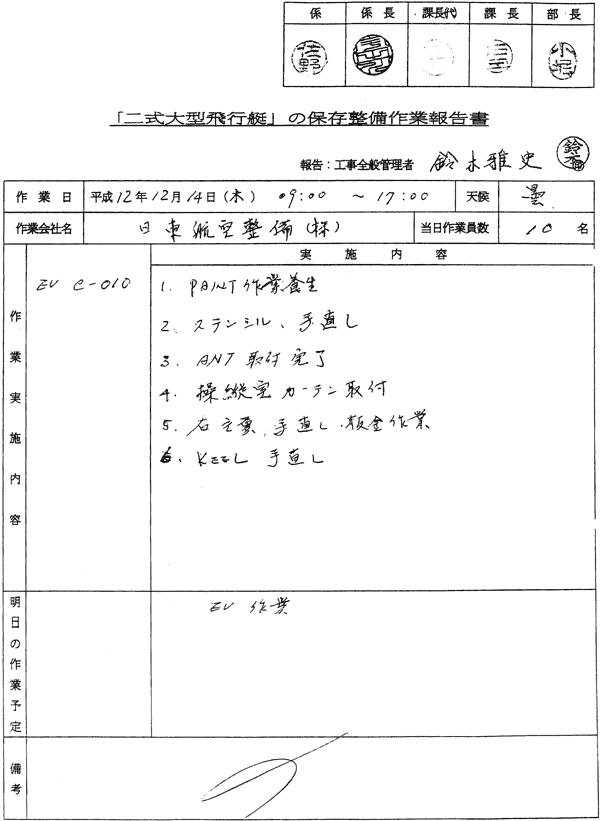 係 係長 課長(代) 課長 部長
佐野
「二式大型飛行艇」の保存整備作業報告書
報告：工事全般管理者 鈴木雅史 鈴木
作業日 平成12年12月14日(木) 09:00 ～17:00 天候 曇
作業会社名 日東航空整備(株) 当日作業員数 10名
作業実施内容
実施内容
EU C-010
1. PAINT作業養生
2. ステンシル、手直し
3. ANT取付完了
4. 操縦室カーテン取付
5. 右主翼、手直し・板金作業
6. KEEL 手直し
明日の作業予定
EU 作業
備考